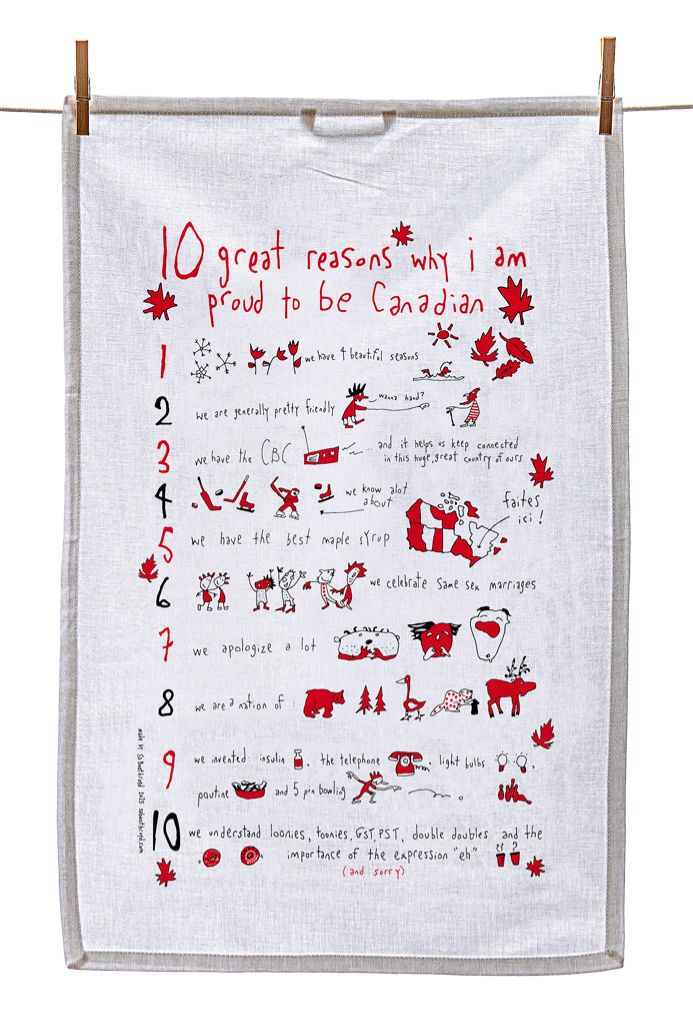 10 great reasons why i am
proud to be Canadian
1 we have 4 beautiful seasons
2 we are generally pretty friendly wanna hand?
3 we have the CBC ... and it helps us keep connected
in this huge, great country of ours
4 we know alot
about
faites
ici!
5 we have the best maple syrup
6 we celebrate same sex marriages
7 we apologize a lot
8 we are a nation of :
9 we invented: insulin , the telephone , light bulbs ,
poutine and 5 pin bowling
10 we understand loonies, toonies, GST, PST, double doubles and the
importance of the expression "eh"
(and sorry)
made in